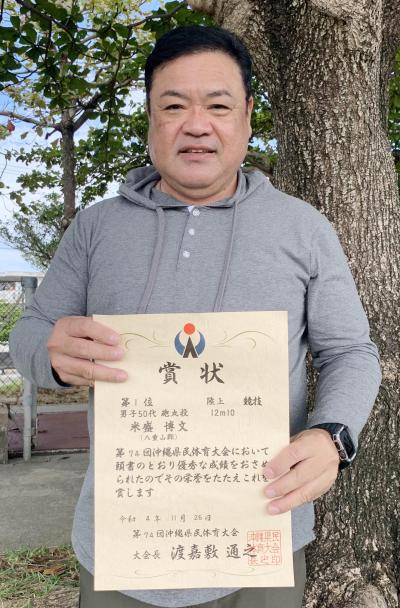 賞状
第1位 陸上 競技
男子50代 砲丸投 12m10
米盛 博文
(八重山郡)
第74回沖縄県民体育大会において
頭書のとおり優秀な成績をおさめ
られたのでその栄誉をたたえこれを
賞します
令和 4年 11月 26日
第74回沖縄県民体育大会
大会長 渡嘉敷 通之